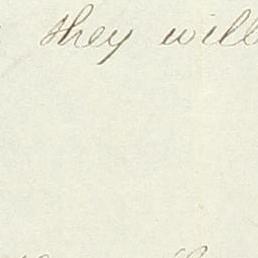 they will